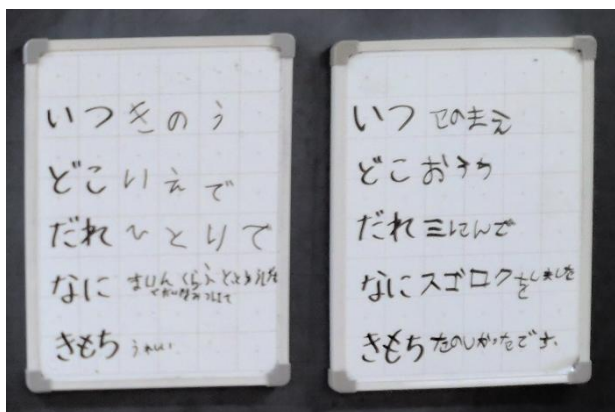 いつ きのう
どこ いえで
だれ ひとりで
なに
きもち うれしい
いつ このまえ
どこ おうち
だれ 三にんで
なに スゴロクをしました
きもち たのしかったです。